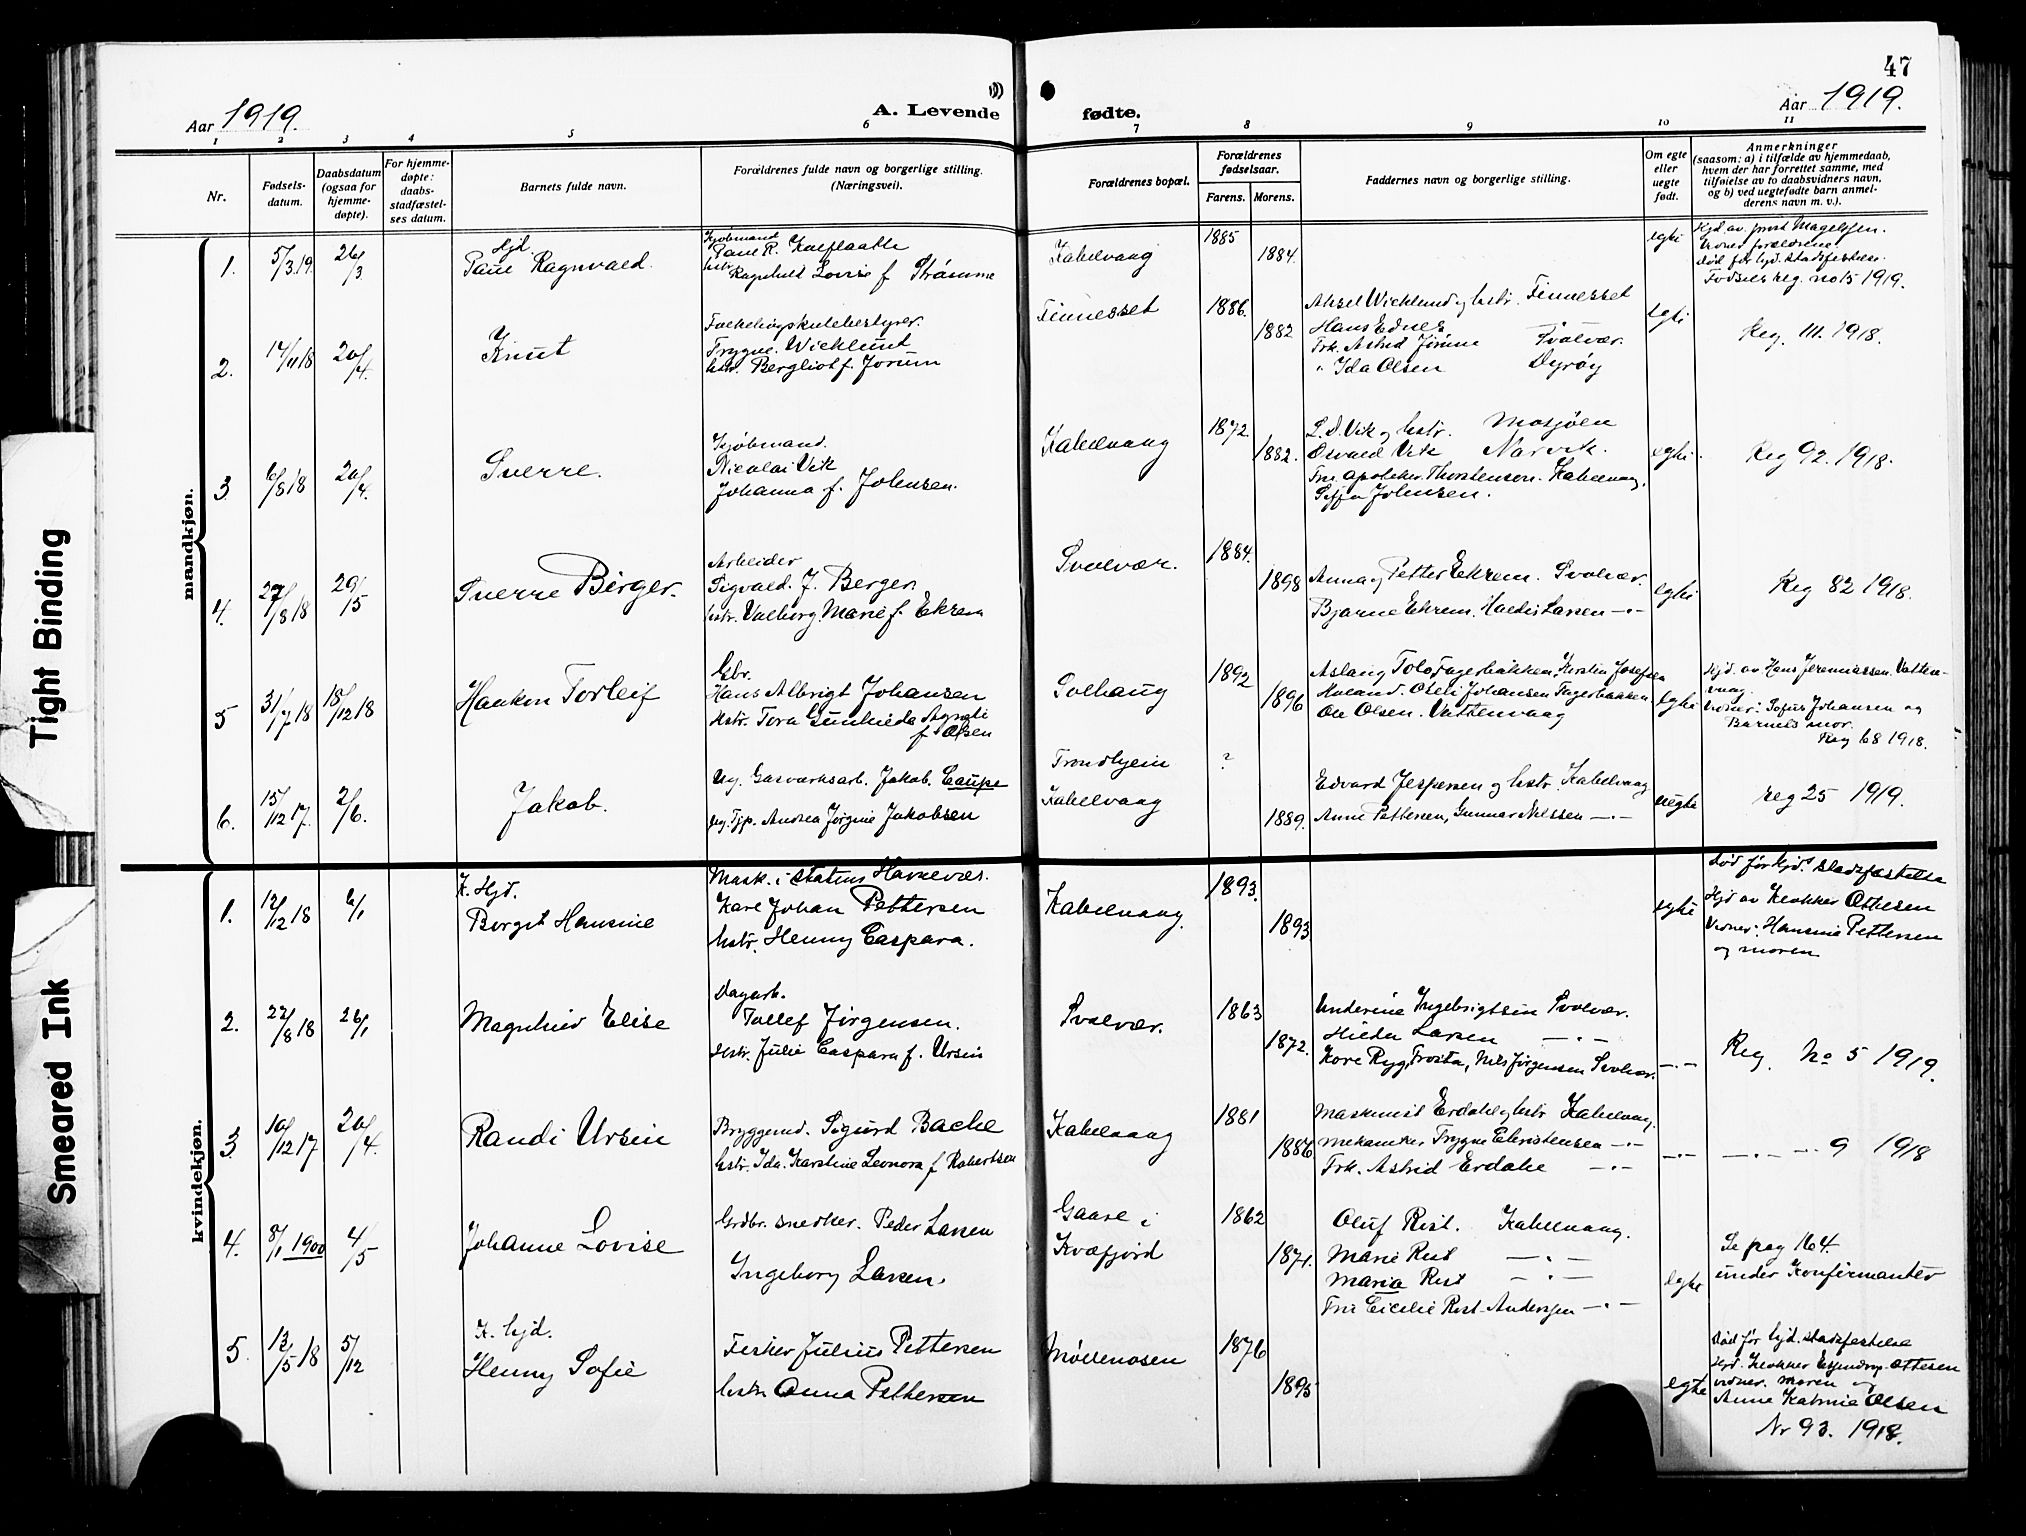 47
Aar 1919.
A. Levende
fødte.
Aar 1919.
1 2 3 4 5 6 7 8 9 10 11
Nr.
Fødsels-
datum.
Daabsdatum
(ogsaa for
hjemme-
døpte).
For hjemme-
døpte:
daabs-
stadfæstel-
ses datum.
Barnets fulde navn.
Forældrenes fulde navn og borgerlige stilling.
(Næringsvei).
Forældrenes bopæl.
Forældrenes
fødselsaar.
Farens. Morens.
Faddernes navn og borgerlige stilling.
Om egte
eller
uegte
født.
Anmerkninger
(saasom: a) i tilfælde av hjemmedaab,
hvem der har forrettet samme, med
tilføielse av to daabsvidners navn,
og b) ved uegtefødte barn anmel-
derens navn m. v.).
mandkjøn.
1.
5/3.19.
26/3
Hjd.
Paul Ragnvald.
Kjøbmand
Paul R. Kalflaatte
hstr. Ragnhild Lovise f. Strømme
Kabelvaag
1885
1884.
egte
Hjd. av prost Magelssen.
Vidner forældrene.
Død før hjd. stadfestelse.
Fødsels reg. no 15 1919.
2.
14/11 18
20/4.
Knut
Folkehøgskulebestyrer.
Trygve Wicklund
hstr. Bergliot f. Jorum
Finnesset
1886.
1882
Aksel Wicklund og hstr. Finnesset
Hans Ednes
Frk. Astrid Jinne Svolvær.
" Ida Olsen Dyrøy
egte
Reg. 111. 1918.
3
6/8 18
20/4.
Sverre.
Kjøbmand.
Nicolai Vik
Johanna f. Johnsen.
Kabelvaag
1872.
1882.
L. D. Vik og hstr. Mosjøen
Osvald Vik Narvik.
Fru apoteker Thorstensen. Kabelvaag.
Johnsen.
egte.
Reg 92. 1918.
4.
27/8 18
29/15
Sverre Birger.
Arbeider
Sigvald. J. Berger.
hstr. Valborg Marie f. Ekrem
Svolvær.
1884.
1898
Anna og Petter Ekrem. Svolvær.
Bjarne Ekrem. Haldis Larsen —"—
egte
Reg 82 1918.
5
31/7 18
18/12 18
Haakon Torleif
Gbr.
Hans Albrigt Johansen
Hstr. Tora Gunhilda Agnati
f. Olsen
Solhaug
1892
1896
Aslaug Tolo Fagerbakken, Kirstin Josefsen
Høland. Oseli Johansen Fagerbakken
Ole Olsen. Vattenvaag
egte
Hjd. av Hans Jeremiassen Vatten-
vaag.
Vidner: Sofus Johansen og
Barnets mor.
Reg 68 1918.
6.
15/12 17.
2/6.
Jakob.
Ug. Gasværksarb. Jakob. Caupe
Ug. Tjp. Andrea Jørgine Jakobsen
Trondhjem
Kabelvaag
?
1889.
Edvard Jespersen og hstr. Kabelvaag
Anne Pettersen, Gunnar Nilssen —"—
uegte
reg 25 1919.
kvindekjøn.
1.
12/12 18
6/1
K. Hjd.
Borgit Hansine
Mask. i statens Havnevæs.
Karl Johan Pettersen
hstr. Henny Caspara.
Kabelvaag.
1893.
1893
egte
Død før hjd. stadfæstelse
Hjd av klokker Ottesen
Vidner: Hansine Pettersen
og moren
2.
22/8 18
26/1
Magnhild Elise
Dagarb.
Tollef Jørgensen.
Hstr. Julie Caspara f. Ursin
Svolvær.
1863
1872.
Underine Ingebrigtsen Svolvær.
Hilda Larsen —"—
Kore Ryg, Trosta, Nils Jørgensen Svolvær.
—"—
Reg. No 5 1919.
3
10/12 17
20/4
Randi Ursin
Bryggemd. Sigurd Bache
hstr. Ida Karstine Leonora f. Robertsen
Kabelvaag
1881
1886
Maskinist Erdahl og hstr Kabelvaag.
Mekaniker Trygve Christensen —"—
Frk. Astrid Erdahl —"—
—"—
—"— —"— 9 1918
4.
8/1 1900
4/5
Johanne Lovise
Grdbr. snedker. Peder Larsen
Ingeborg Larsen.
Gaare i
Kvæfjord
1862
1871.
Oluf Rist. Kabelvaag.
Marie Rist —"—
Maria Rist —"—
Fru Cicilie Rist-Andersen —"—
egte
Se pag 164.
under Konfirmanter
5.
13/5 18
5/12
K. hjd.
Henny Sofie
Fisker Julius Pettersen
hstr Anna Pettersen
Møllenosen
1876
1895
egte
Død før hjd. stadfestelse
Hjd. Klokker Ottesen
vidner. moren og
Anne Katrine Olsen
Nr 93. 1918.
Tight Binding
Smeared Ink